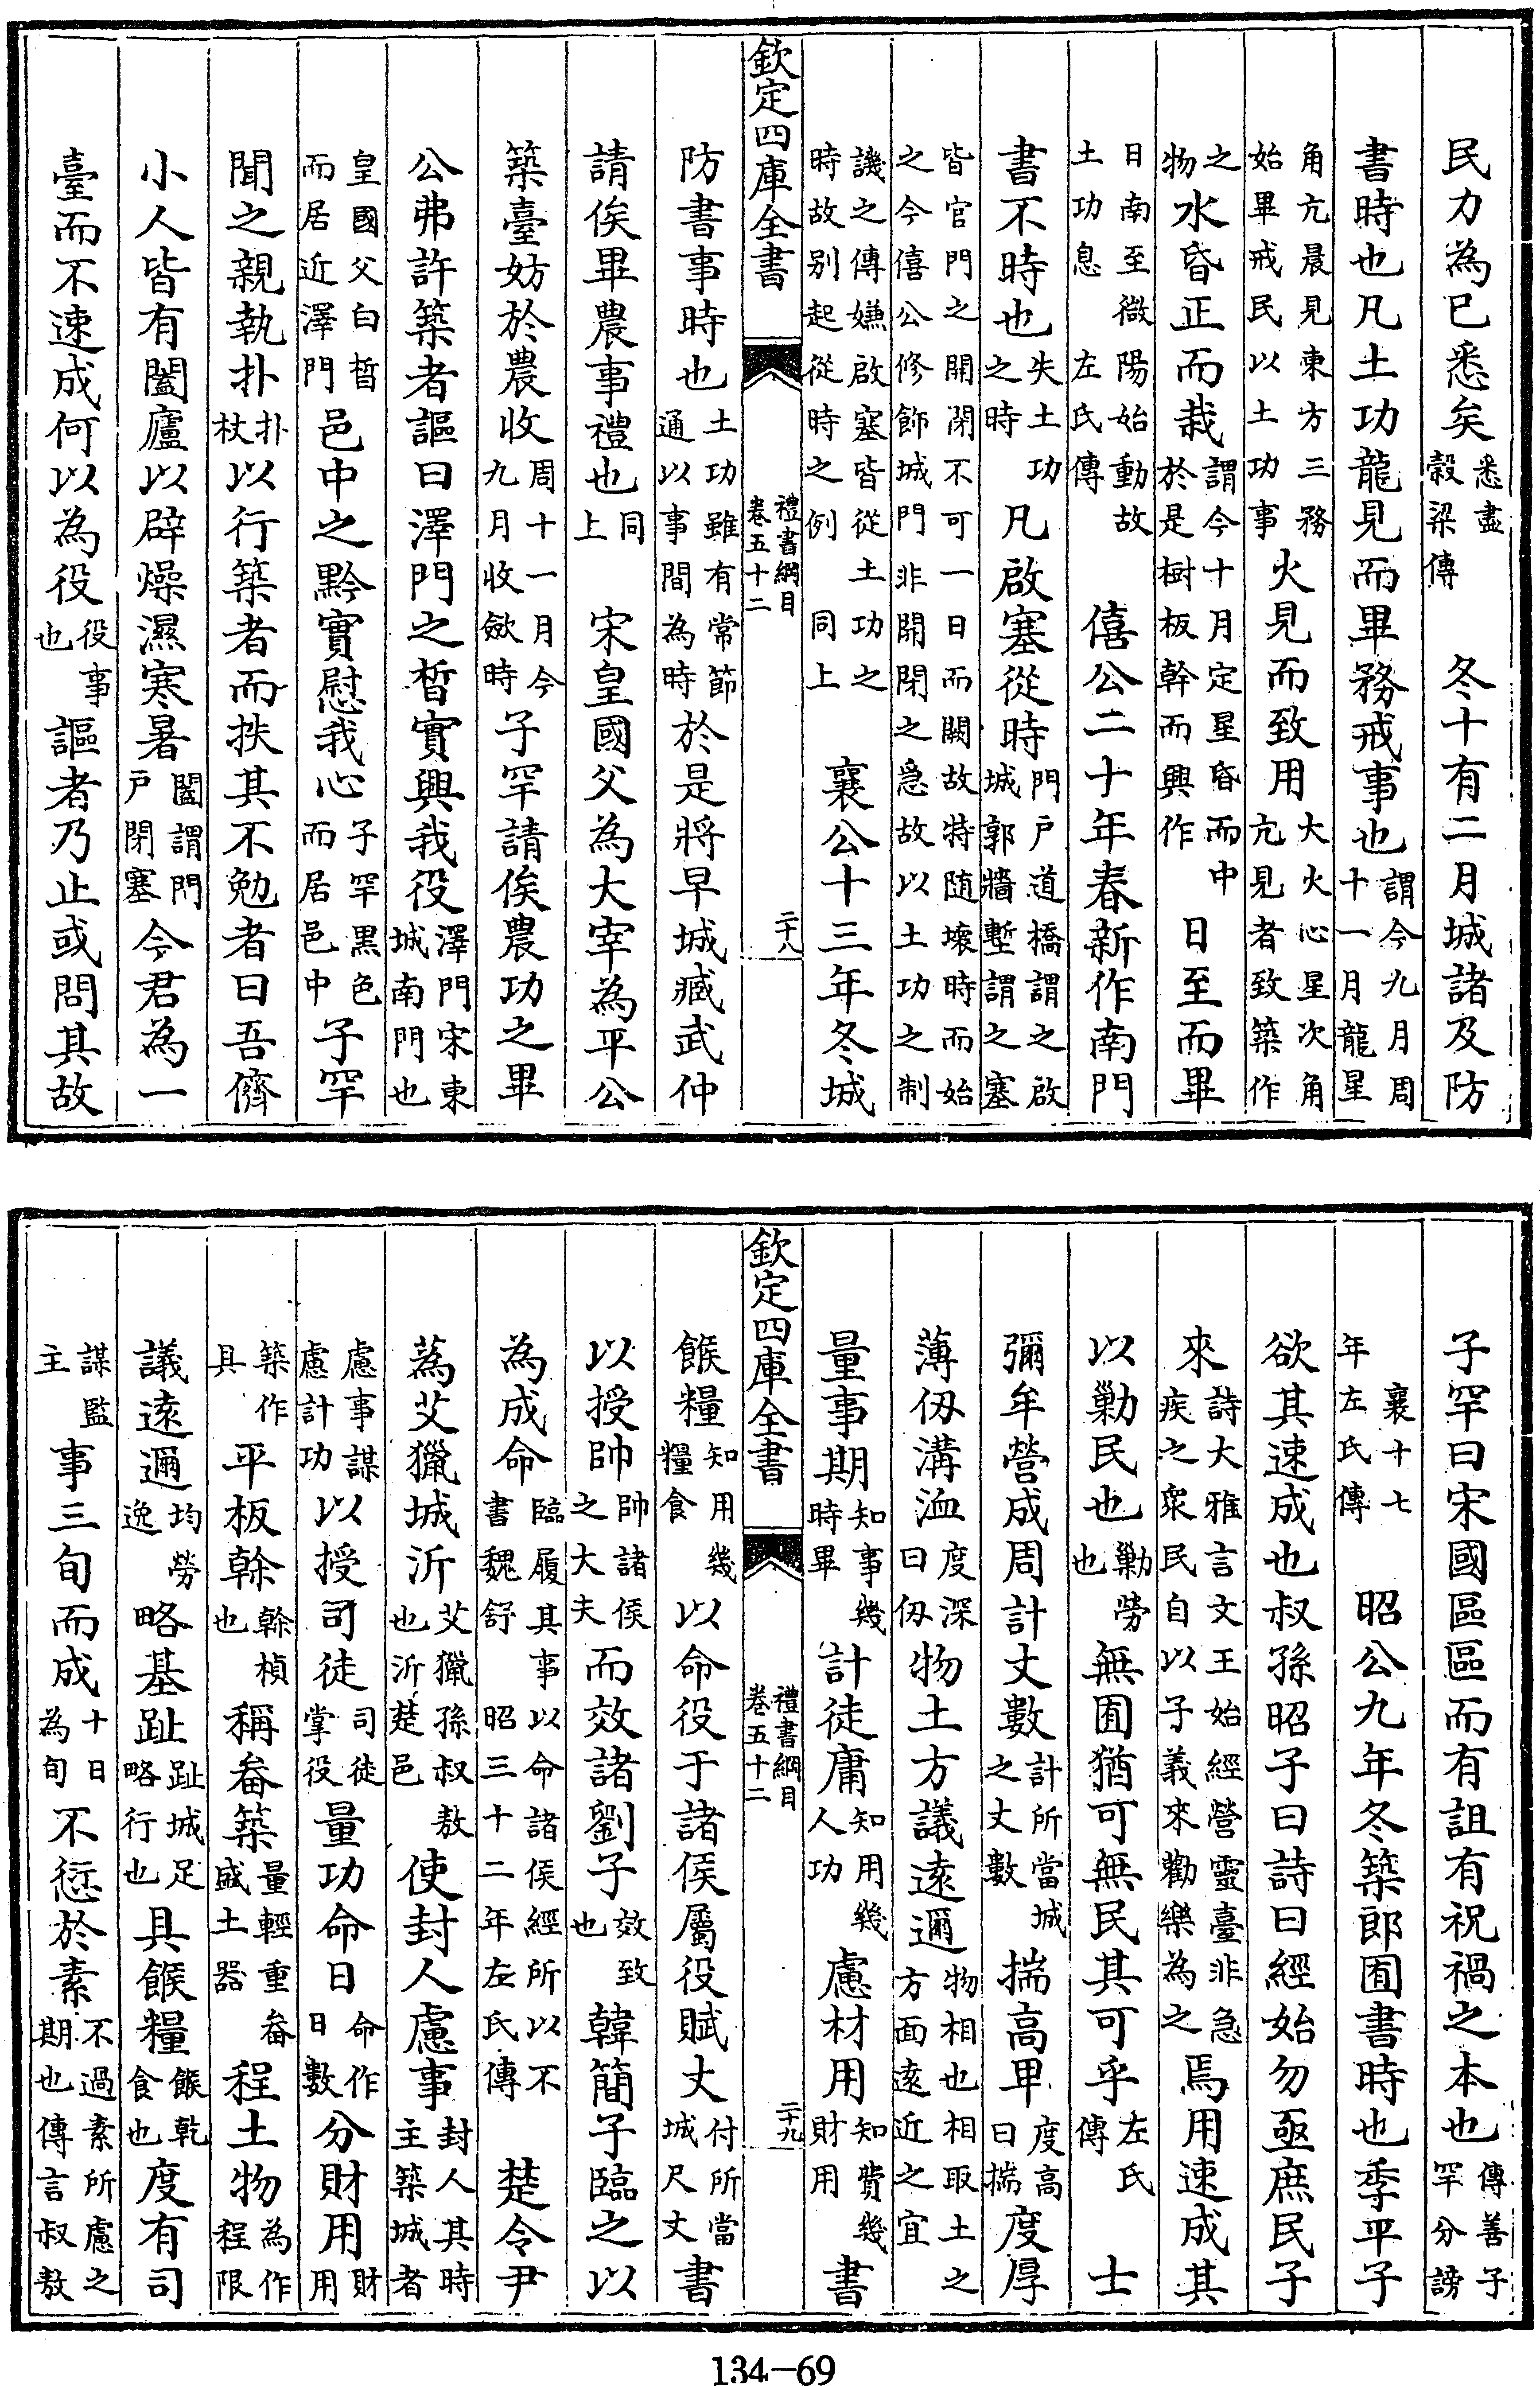 民力為已悉矣悉盡穀梁傳　冬十有二月城諸及防
書時也凡土功龍見而畢務戒事也謂今九月周十一月龍星
角亢晨見東方三務始畢戒民以土功事火見而致用大火心星次角亢見者致築作
之物水昏正而栽謂今十月定星昏而中於是樹板幹而興作日至而畢
日南至微陽始動故土功息　左氏傳　僖公二十年春新作南門
書不時也失土功之時　凡啟塞從時門戶道橋謂之啟城郭牆塹謂之塞
皆官門之開閉不可一日而闕故特隨壞時而始之今僖公修飾城門非開閉之急故以土功之制
譏之傳嫌啟塞皆從土功之時故别起從時之例　同上　襄公十三年冬城
欽定四庫全書　禮書綱目卷五十二　二十八
防書事時也土功雖有常節通以事間為時於是將早城臧武仲
請俟畢農事禮也同上　宋皇國父為大宰為平公
築臺妨於農收周十一月今九月收斂時子罕請俟農功之畢
公弗許築者謳曰澤門之皙實興我役澤門宋東城南門也
皇國父白皙而居近澤門邑中之黔實慰我心子罕黑色而居邑中子罕
聞之親執扑扑杖以行築者而抶其不勉者曰吾儕
小人皆有闔廬以辟燥濕寒暑闔謂門戶閉塞今君為一
臺而不速成何以為役役事也謳者乃止或問其故
子罕曰宋國區區而有詛有祝禍之本也傳善子罕分謗
襄十七年左氏傳　昭公九年冬築郎囿書時也季平子
欲其速成也叔孫昭子曰詩曰經始勿亟庶民子
來詩大雅言文王始經營靈臺非急疾之衆民自以子義來勸樂為之焉用速成其
以勦民也勦勞也無囿猶可無民其可乎左氏傳　士
彌牟營成周計丈數計所當城之丈數揣高卑度高曰揣度厚
薄仞溝洫度深曰仞物土方議遠邇物相也相取土之方面遠近之宜
量事期知事幾時畢計徒庸知用幾人功慮材用知費幾財用書
欽定四庫全書　禮書綱目卷五十二　二十九
餱糧知用幾糧食以命役于諸侯屬役賦丈付所當城尺丈書
以授帥帥諸侯之大夫而效諸劉子效致也韓簡子臨之以
為成命臨履其事以命諸侯經所以不書魏舒　昭三十二年左氏傳　楚令尹
蒍艾獵城沂艾獵孫叔敖也沂楚邑使封人慮事封人其時主築城者
慮事謀慮計功以授司徒司徒掌役量功命日命作日數分財用財用
築作具平板榦榦楨也稱畚築量輕重畚盛土器程土物為作程限
議遠邇均勞逸略基趾趾城足略行也具餱糧餱乾食也度有司
謀監主事三旬而成十日為旬不愆於素不過素所慮之期也傳言叔敖
134—69